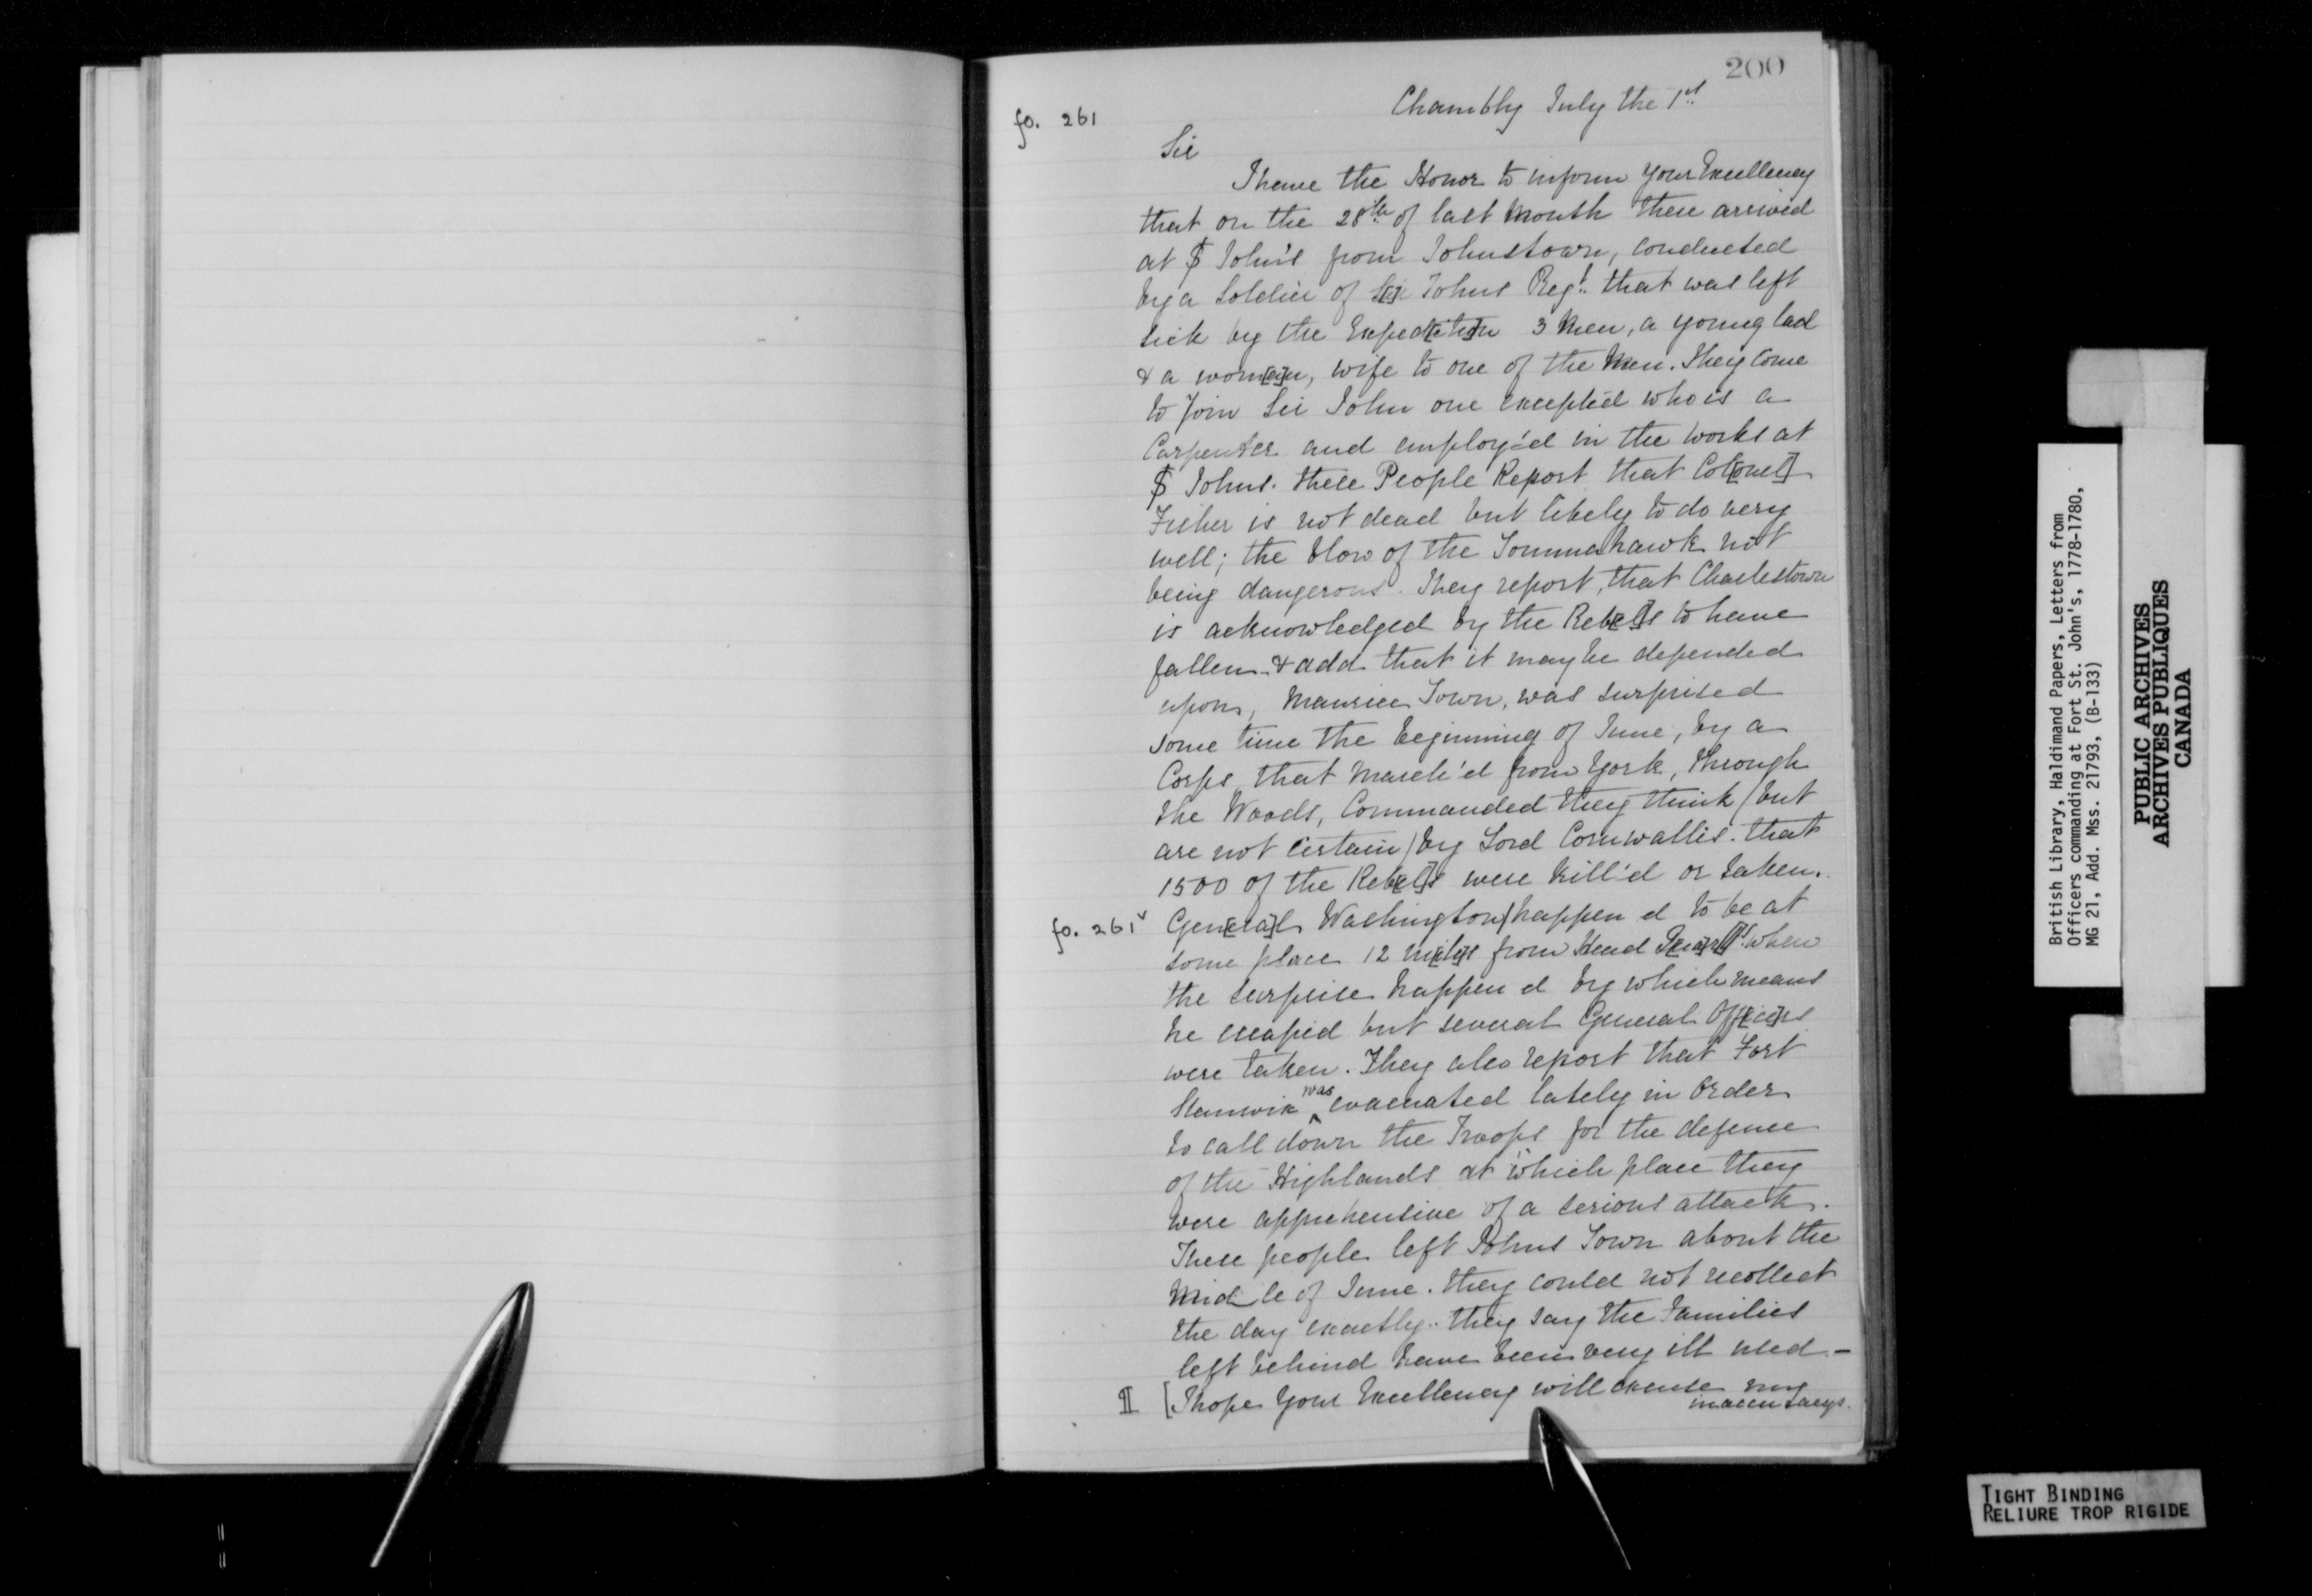 200
fo. 261
Chambly July the 1st
Sir
I have the Honor to inform Your Excellency
that on the 28th of last Month there arrived
at St John's from Johnstown, conducted
by a Soldier of S[i]r Johns Regt. that was left
sick by the Exped[itio]n 3 Men, a young lad
& a wom[a]n, wife to one of the Men. They come
to Join Sir John one excepted who is a
Carpenter and employ'd in the works at
St Johns. these People Report that Col[onel]
Fisher is not dead but likely to do very
well; the blow of the Tommahawk not
being dangerous. They report, that Charlestown
is acknowledged by the Reb[el]s to have
fallen & add that it may be depended
upon, Maurice Town, was surprised
some time the beginning of June, by a
Corps that march'd from York, through
the Woods, Commanded they think (but
are not certain) by Lord Cornwallis. that
1500 of the Reb[el]s were kill'd or taken.
fo. 261v
Gen[era]l Washington happen'd to be at
some place 12 M[ile]s from Head when
the surprise happen'd by which means
he escaped but several General Off[ice]rs
were taken. They also report that Fort
Stanwix was evacuated lately in Order
to call down the Troops for the defence
of the Highlands at which place they
were apprehensive of a serious attack.
These people left Johns Town about the
Midle of June. they could not recollect
the day exactly. they say the Families
left behind have been very ill used. -
[I hope Your Excellency will excuse my
inaccuracys.
British Library, Haldimand Papers, Letters from
Officers commanding at Fort St. John's, 1778-1780,
MG 21, Add. Mss. 21793, (B-133)
PUBLIC ARCHIVES
ARCHIVES PUBLIQUES
CANADA
TIGHT BINDING
RELIURE TROP RIGIDE